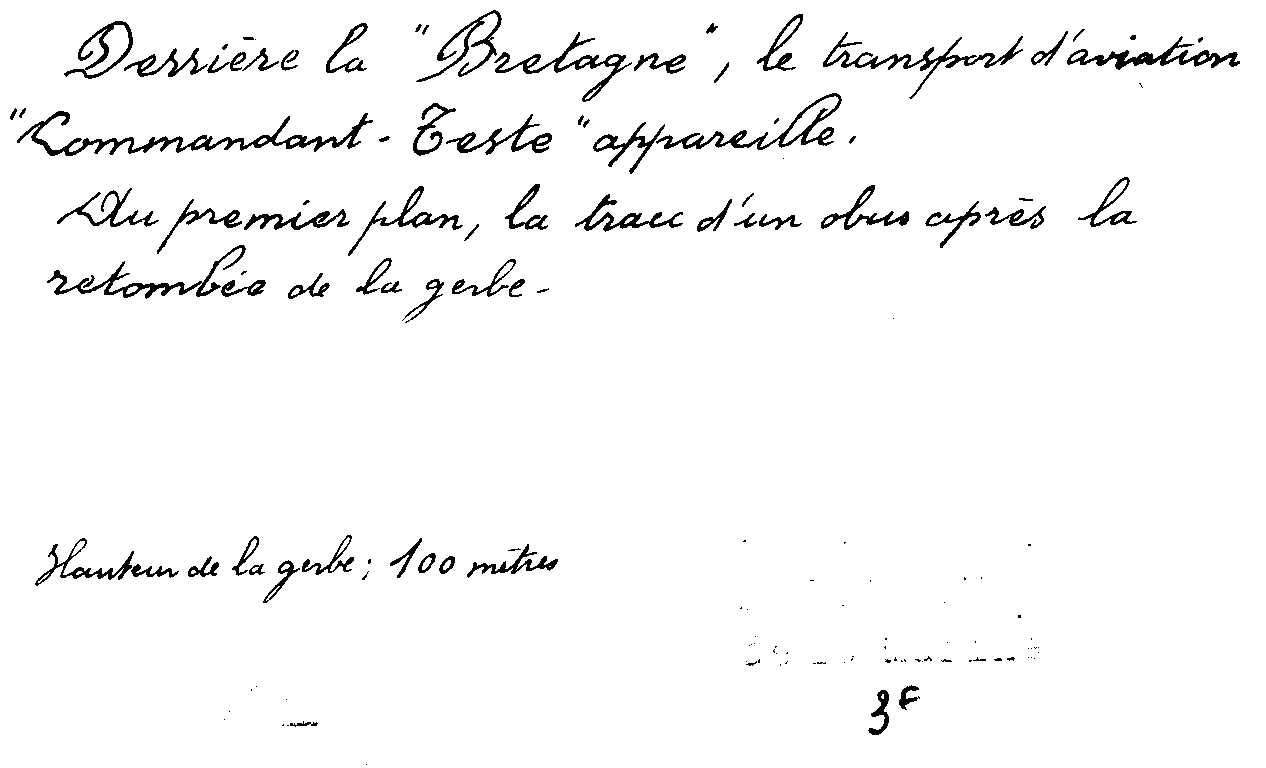 Derrière la "Bretagne", le transport d'aviation
"Commandant-Teste" appareille.
Au premier plan, la trace d'un obus après la
retombée de la gerbe-
Hauteur de la gerbe; 100 mètres
3F